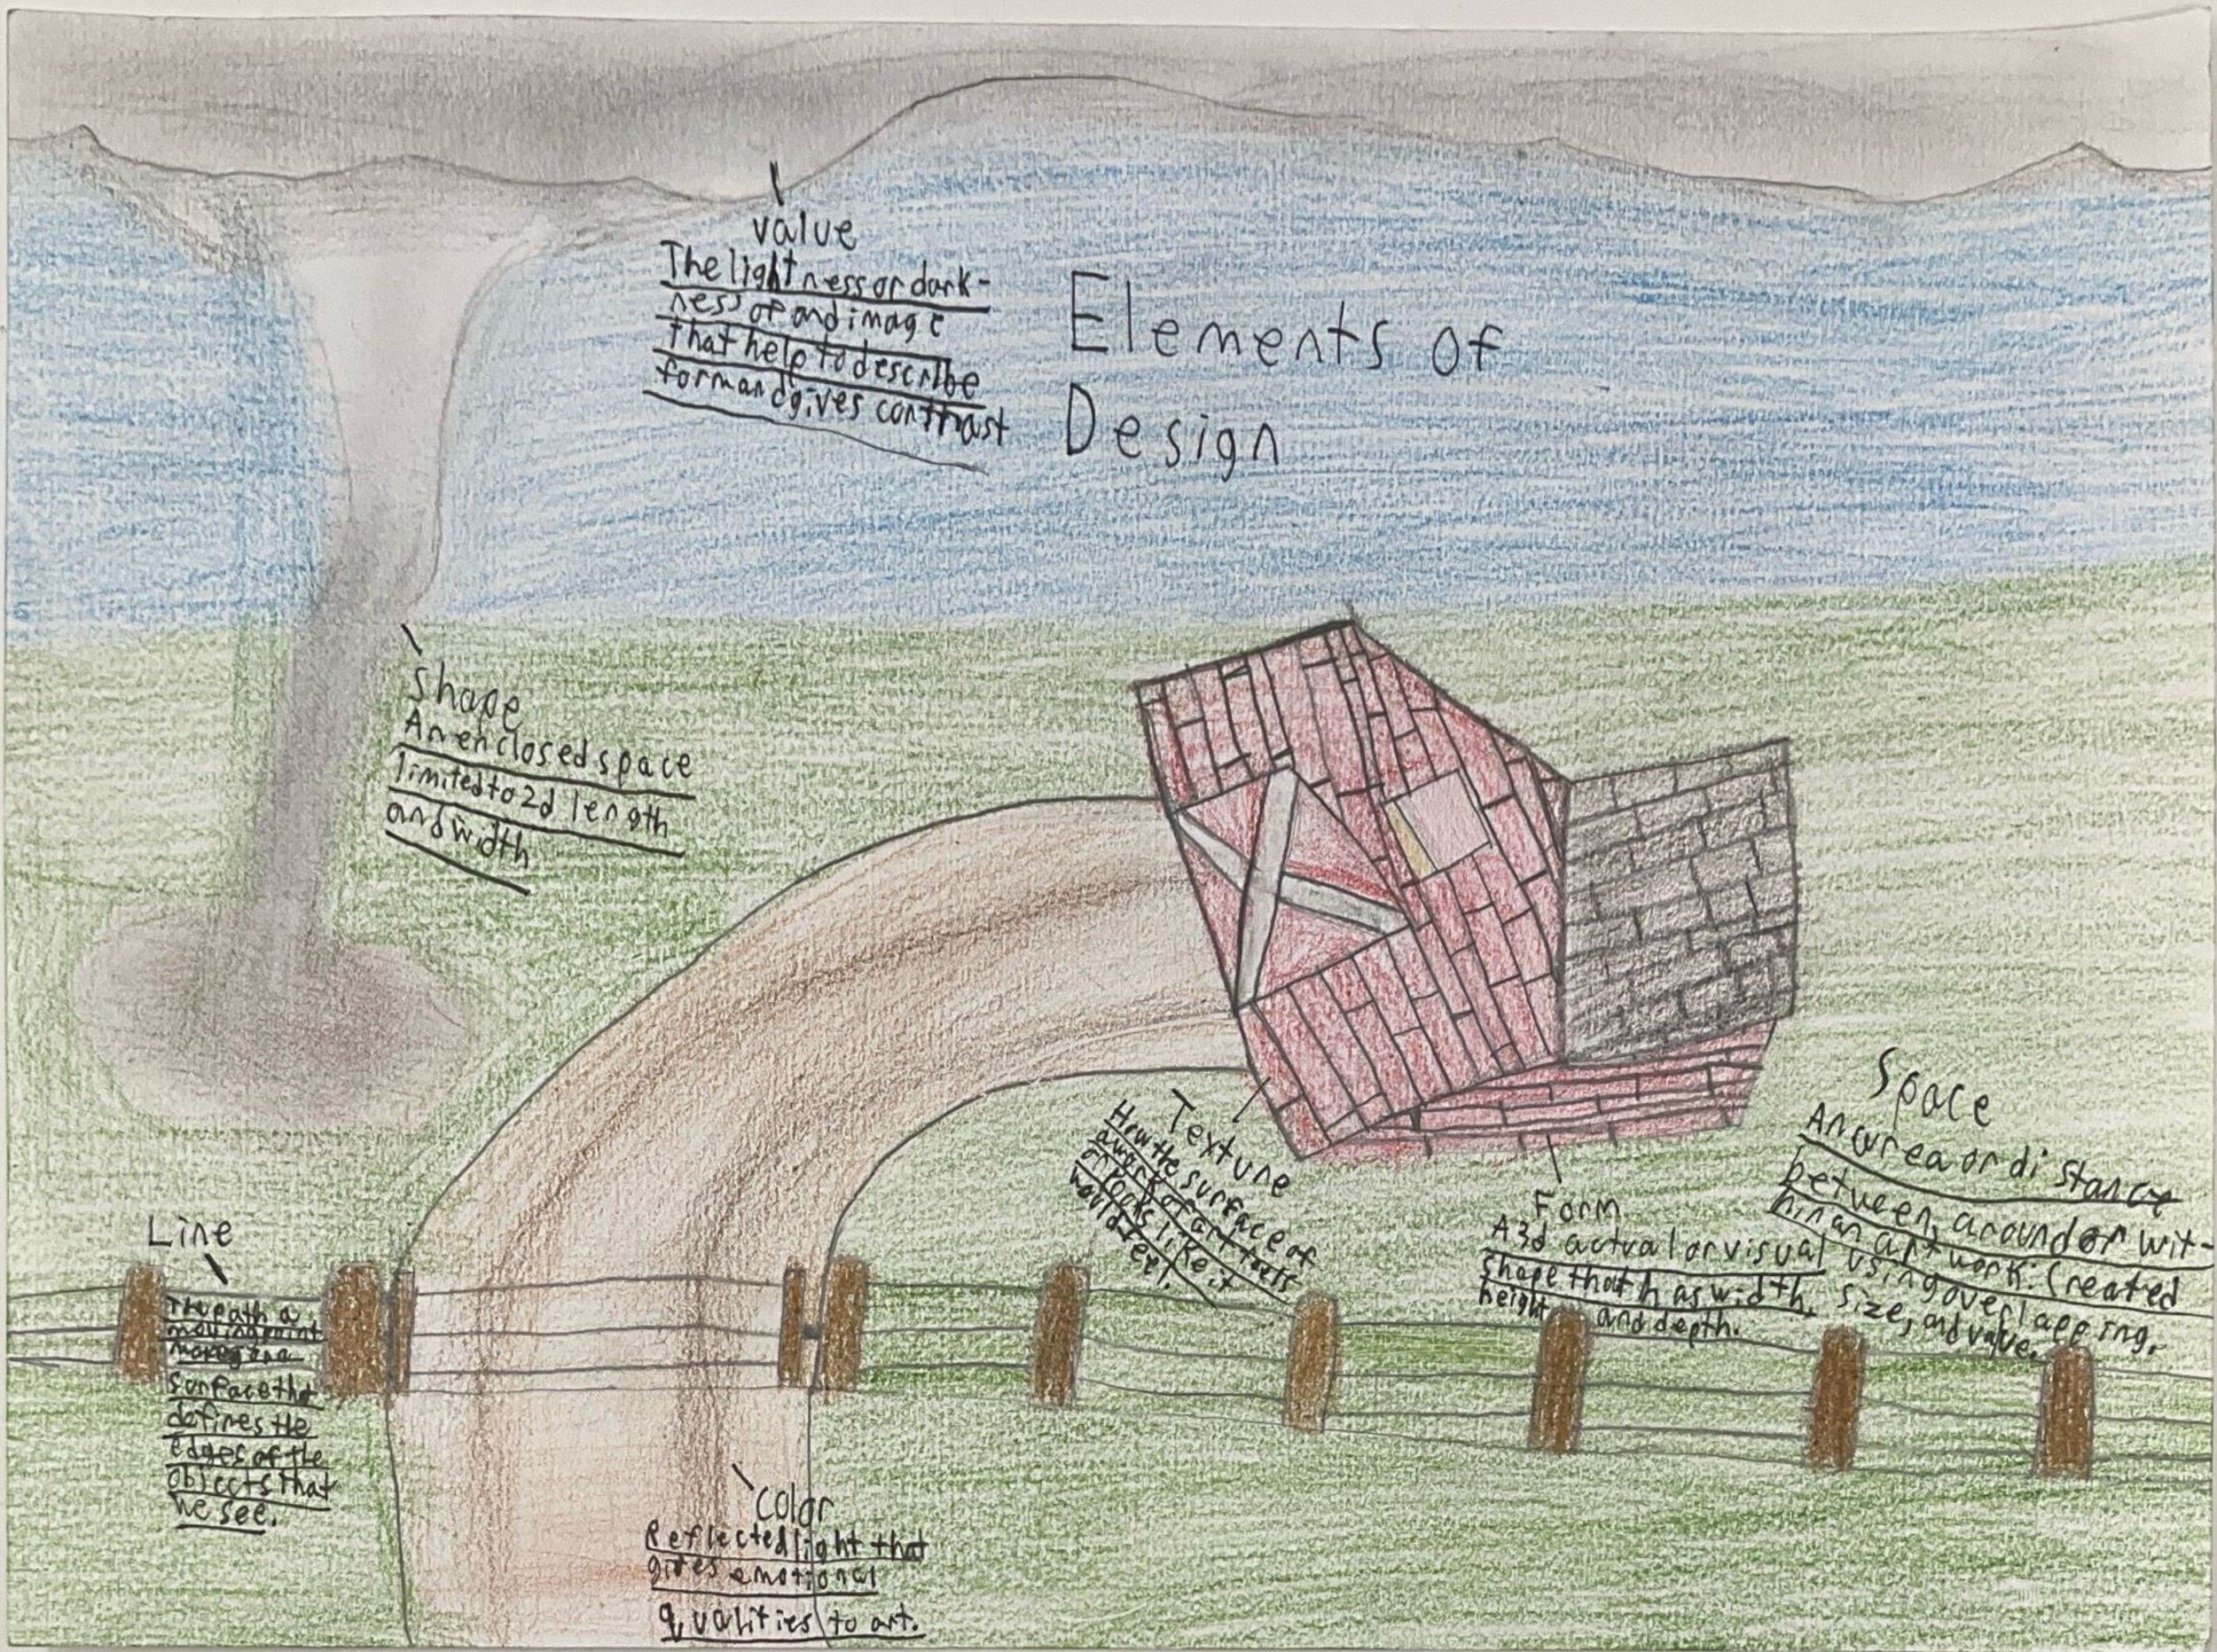 value
The lightness or dark-
ness of and image
that help to describe
form and gives contrast
Elements of
Design
Shape
An enclosed space
limited to 2d length
and width
Texture
How the surface of
a work of art feels
or looks like it
would feel.
Form
A 3d actual or visual
shape that has width,
height and depth.
Space
An aurea or distance
between, around or wit-
hin an art work. Created
using overlapping,
size, and value.
Line
The path a
moving point
makes
surface that
defines the
edges of the
objects that
we see.
Color
Reflected light that
gives emotional
qualities to art.